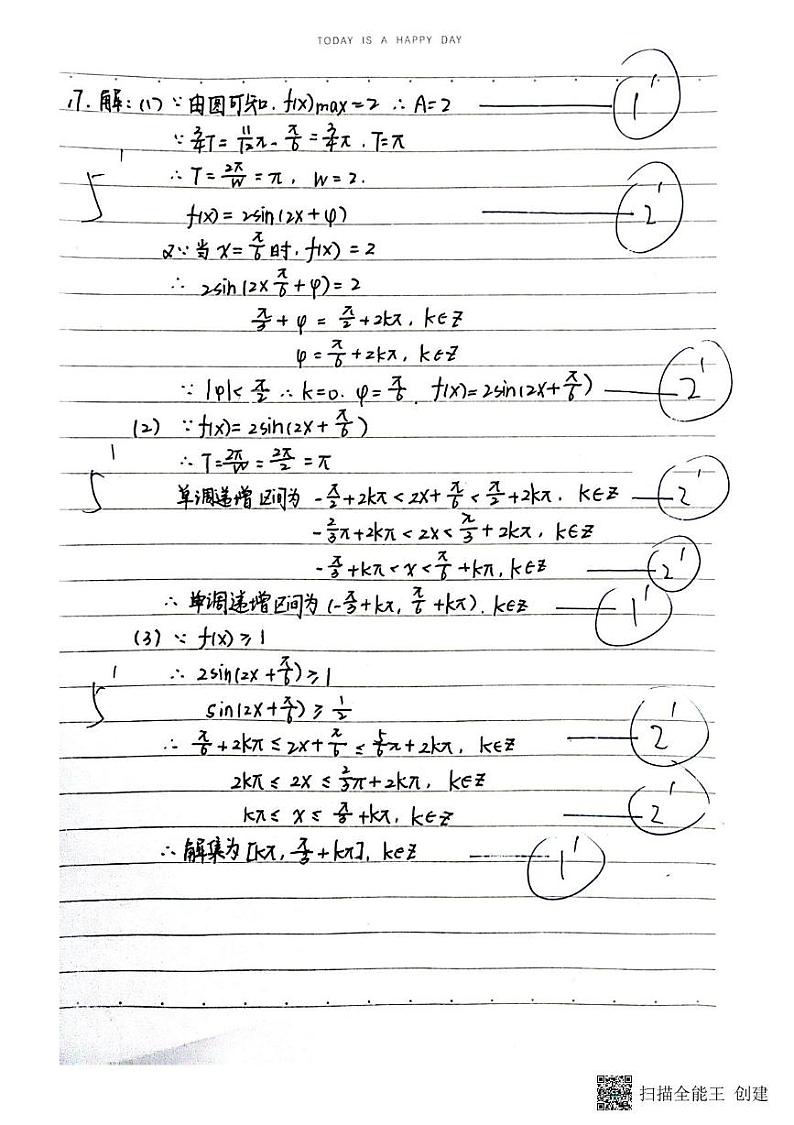 TODAY IS A HAPPY DAY
17. 解: (1) ∵ 由图可知, f(x)max=2 ∴ A=2 1'
∵ 3/4T = 11/12π - π/6 = 3/4π, T=π
5' ∴ T = 2π/W = π, W=2.
f(x) = 2sin(2x+φ) 2'
又∵ 当 x = π/6 时, f(x) = 2
∴ 2sin(2×π/6+φ) = 2
π/3 + φ = π/2 + 2kπ, k∈Z
φ = π/6 + 2kπ, k∈Z
∵ |φ|< π/2 ∴ k=0. φ = π/6, f(x)=2sin(2x+π/6) 2'
(2) ∵ f(x) = 2sin(2x+π/6)
5' ∴ T = 2π/W = 2π/2 = π
单调递增区间为 -π/2+2kπ < 2x+π/6 < π/2+2kπ, k∈Z 2'
-2/3π+2kπ < 2x < π/3+2kπ, k∈Z
-π/3+kπ < x < π/6+kπ, k∈Z 2'
∴ 单调递增区间为 (-π/3+kπ, π/6+kπ), k∈Z 1'
(3) ∵ f(x) ≥ 1
5' ∴ 2sin(2x+π/6) ≥ 1
sin(2x+π/6) ≥ 1/2
∴ π/6+2kπ ≤ 2x+π/6 ≤ 5/6π+2kπ, k∈Z 2'
2kπ ≤ 2x ≤ 2/3π+2kπ, k∈Z
kπ ≤ x ≤ π/3+kπ, k∈Z 2'
∴ 解集为 [kπ, π/3+kπ], k∈Z 1'
扫描全能王 创建